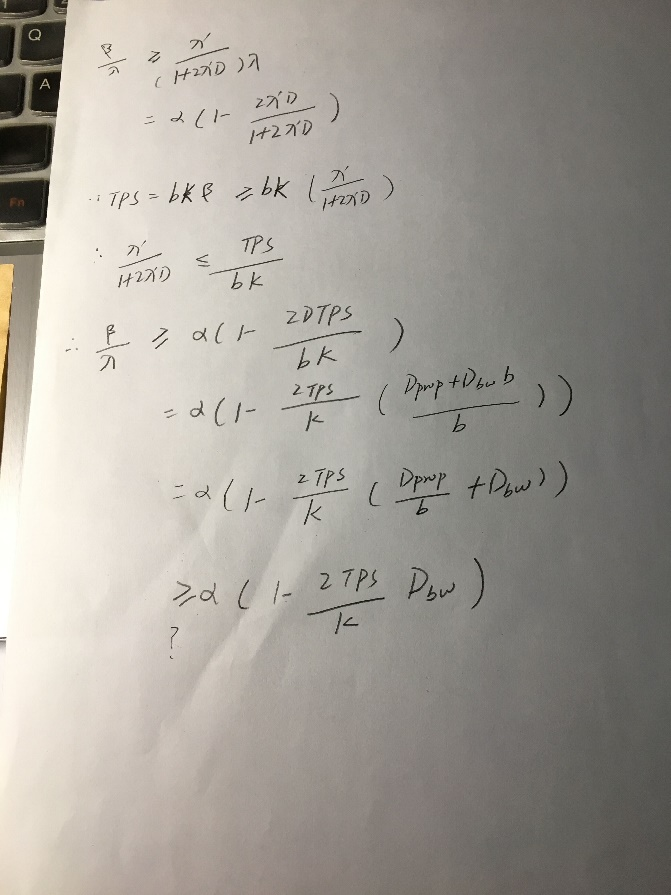 Q
A
Fn
β/λ ≥ λ'/(1+2λ'D)λ
= α(1- 2λ'D/1+2λ'D)
∴ TPS = bKβ ≥ bK (λ'/1+2λ'D)
∴ λ'/1+2λ'D ≤ TPS/bK
∴ β/λ ≥ α(1- 2DTPS/bK)
= α(1- 2TPS/K (Dprop+Dbw b/b))
= α(1- 2TPS/K (Dprop/b +Dbw))
≥ α(1- 2TPS/K Dbw)
?